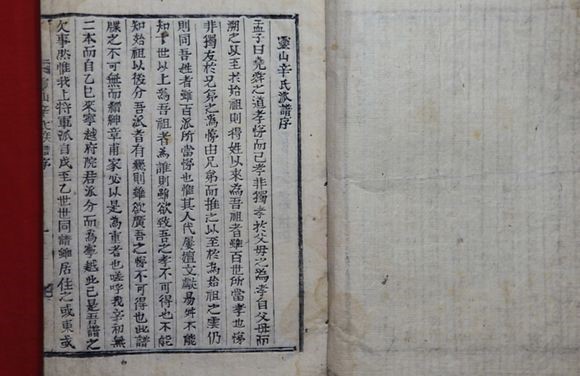 靈山辛氏派譜序
孟子曰堯舜之道孝悌而已孝非獨孝於父母之為孝自父母而
溯之以至於始祖則得姓以來為吾祖者雖百世所當孝也悌
非獨友於兄弟之為悌由兄弟而推之以至於為始祖之雲仍
則同吾姓者雖百派所當悌也惟其人代屢遷文獻易舛不能
知世以上為吾祖者為誰則雖欲致吾之孝不可得也不能
知始祖以後分吾派者有幾則雖欲廣吾之悌不可得也此譜
牒之不可無而縉紳章甫家必以是為重者也嗟呼我辛初無
二本而自乙巳來寧越府院君派分而為寧越此已是吾譜之
欠事然惟我上將軍派自戊至乙世世同譜雖居住之或東或
山辛氏譜序